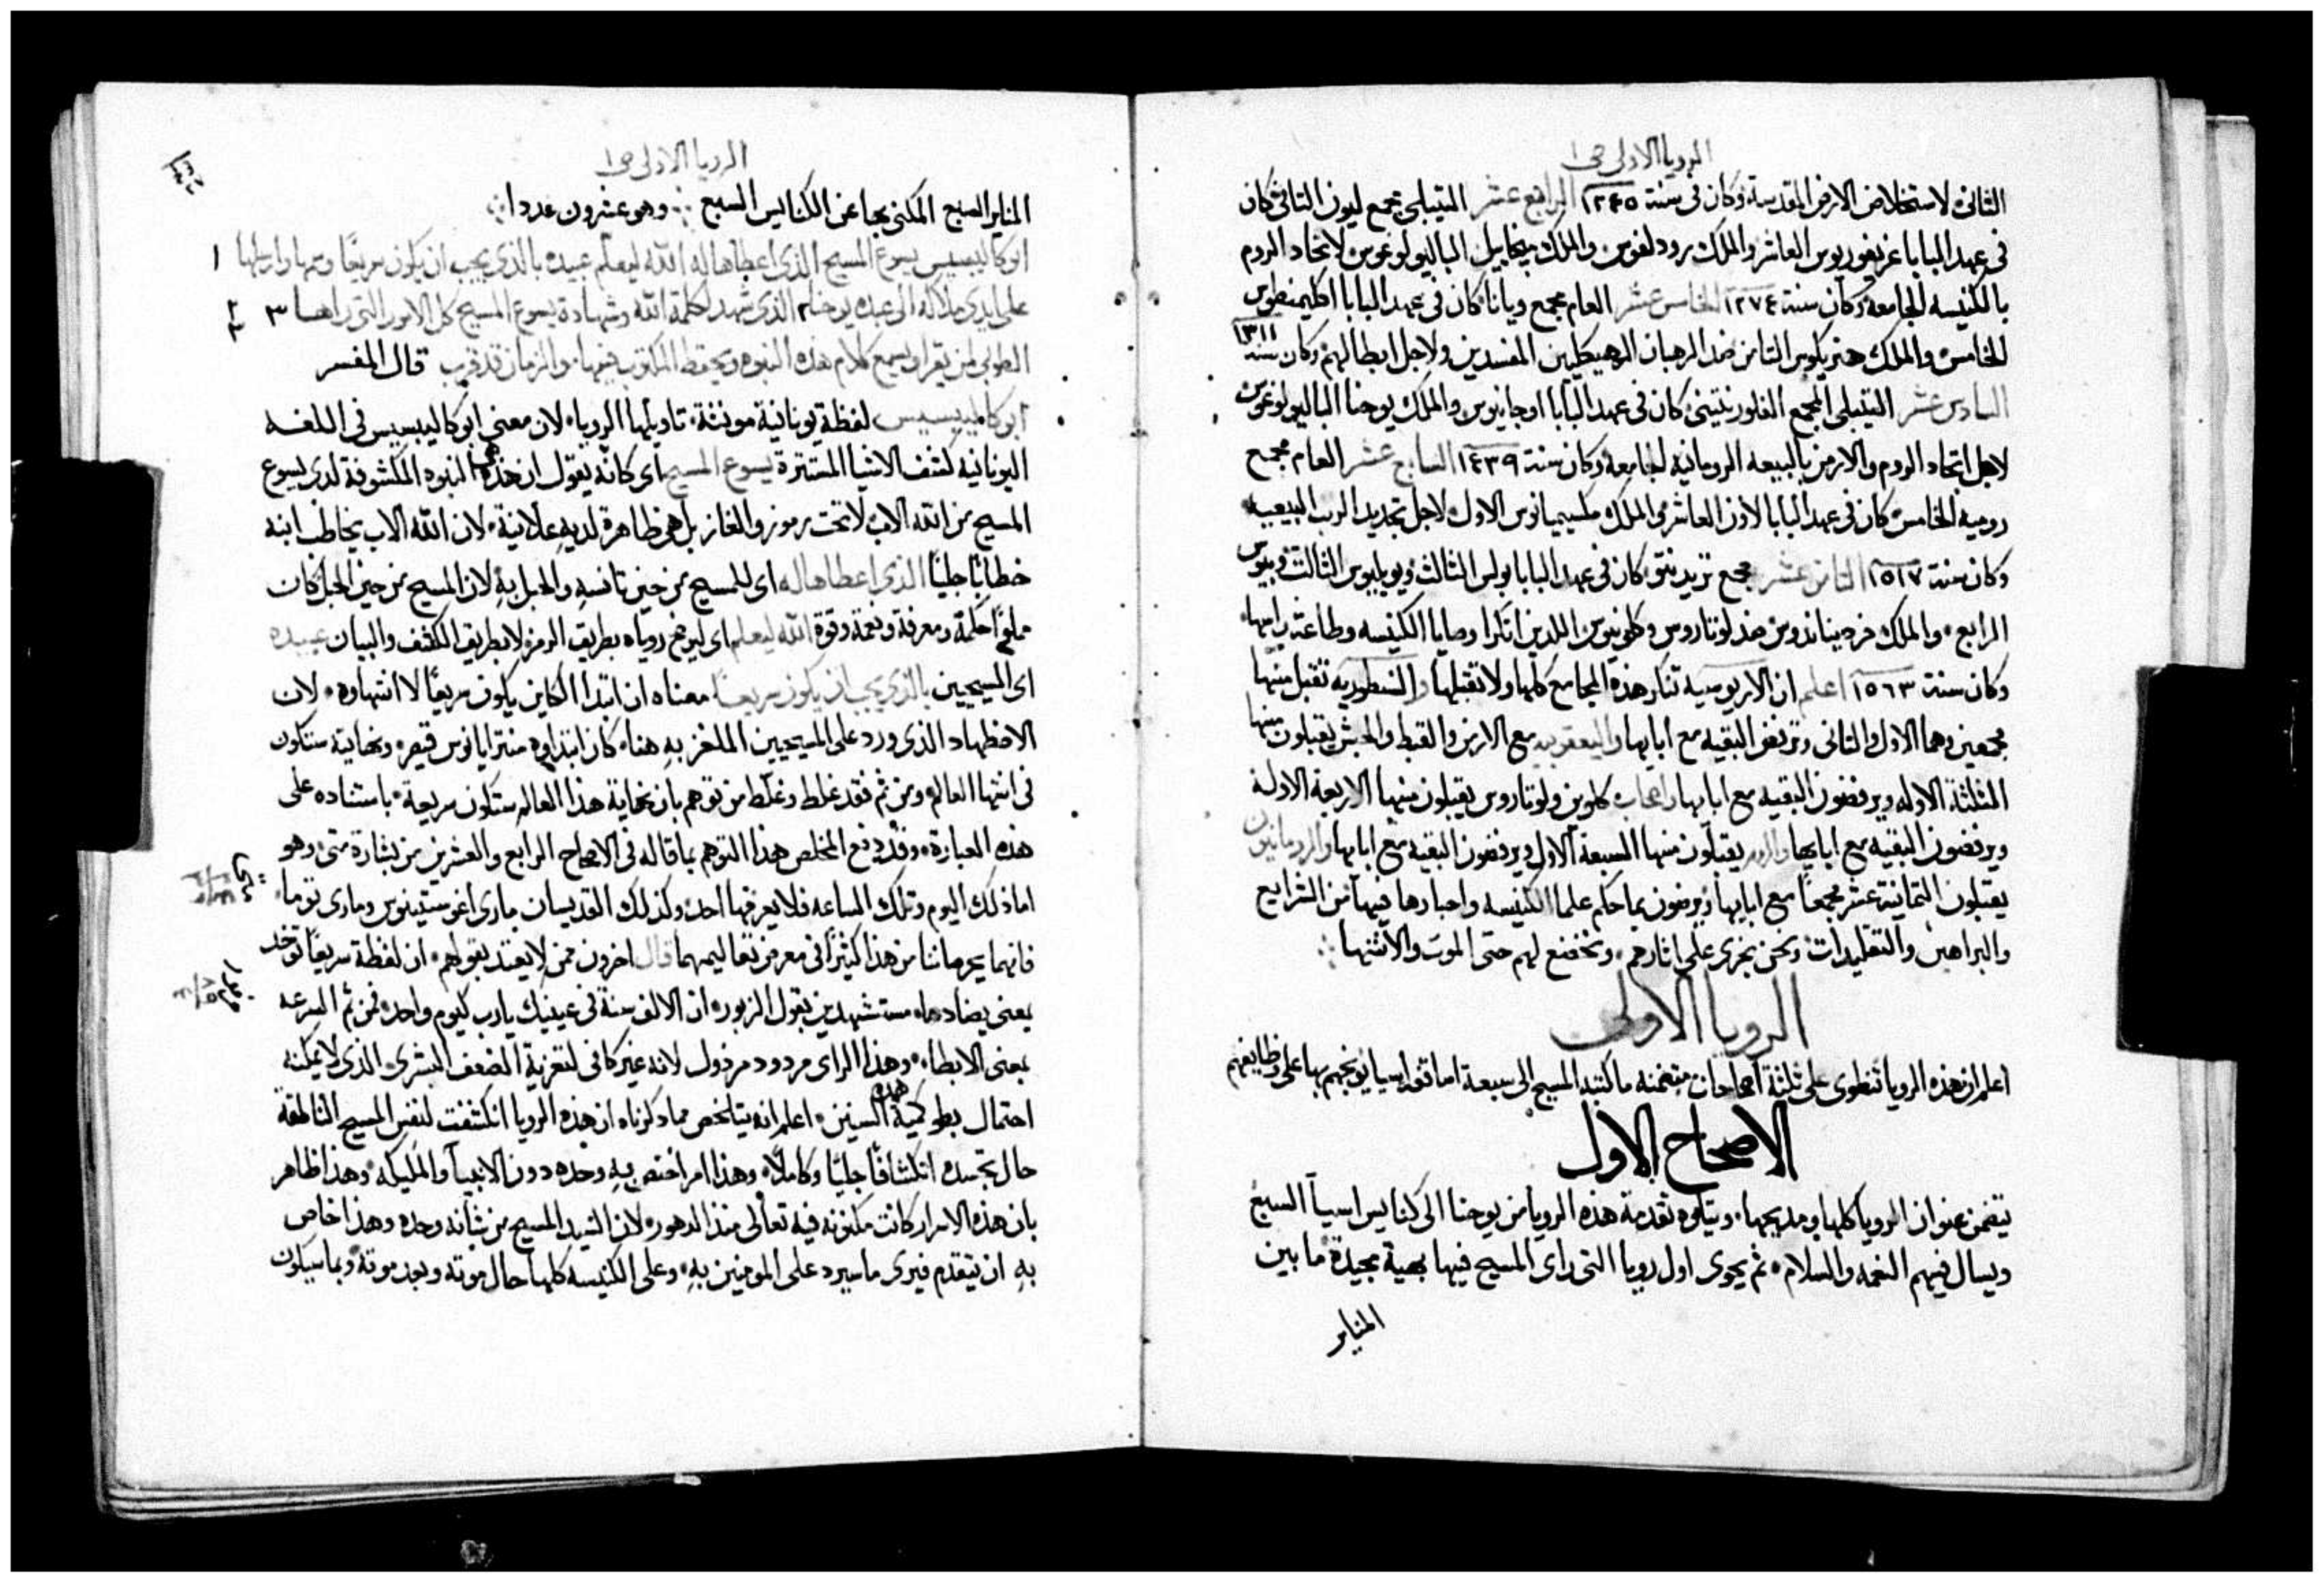 الرويا الاولى ص١
الثانى لاستخلاص الارض المقدسة وكان فى سنة ١٢٤٥ الرابع عشر التيبلى مجمع ليون الثانى كان
فى عهد البابا غريغوريوس العاشر والملك رودلفوس والملك ميخاييل الباليولوغوس لاتحاد الروم
بالكنيسه الجامعه وكان سنة ١٢٧٤ الخامس عشر العام مجمع ويانا كان فى عهد البابا اكليمنطوس
الخامس والملك هنريكوس الثامن ضد الرهبان الهيكليين المفسدين ولاجل ابطالهم وكان سنة ١٣١١
السادس عشر التيبلى المجمع الفلورنتينى كان فى عهد البابا اوجانيوس والملك يوحنا الباليولوغوس
لاجل اتحاد الروم والارمن بالبيعه الرومانيه الجامعه وكان سنة ١٤٣٩ السابع عشر العام مجمع
رومية الخامس كان فى عهد البابا لاون العاشر فى الملك مكسيميانوس الاول لاجل تجديد الرب البيعيه
وكان سنة ١٥١٧ الثامن عشر مجمع تريدنتو كان فى عهد البابا بولس الثالث ويوليوس الثالث وبيوس
الرابع والملك فرديناندوس ضد لوتاروس وكلوينوس اللدين انكرا وصايا الكنيسه وطاعة راسها
وكان سنة ١٥٦٣ اعلم ان الاريوسيه تنكر هذه المجامع كلها ولا تقبلها والنسطوريه تقبل منها
مجمعين وهما الاول والثانى وترفض البقيه مع ابايها واليعقوبيه مع الارمن والقبط والحبش يقبلون منها
الثلثة الاوله ويرفضون البقيه مع ابايها واصحاب كلوين ولوتاروس يقبلون منها الاربعة الاولة
ويرفضون البقيه مع ابايها والروم يقبلون منها السبعة الاول ويرفضون البقيه مع ابايها والرومانيون
يقبلون الثمانية عشر مجمعًا مع ابايها ويرضون بما حكم علما الكنيسه واحبارها فيها من الشرايع
والبراهين والتقليدات ونحن نجرى على اثارهم ونخضع لهم حتى الموت والانتها
الرويا الاولى
اعلم ان هذه الرويا تنطوى على ثلثة اصحاحات متضمنه ما كتبه المسيح الى سبعة اساقفه اسيا يوبخهم بها على وظايفهم
الاصحاح الاول
يتضمن عنوان الرويا كلها ومديحها ويتلوه تقدمة هذه الرويا من يوحنا الى كنايس اسيا السبع
ويسال فيهم النعمه والسلام ثم يحوى اول رويا التى راى المسيح فيها بهية مجيدة ما بين
المناير
الرويا الاولى ص١
المناير السبع المكنى بها عن الكنايس السبع وهو عشرون عددا
ابوكاليبسيس يسوع المسيح الذى اعطاها له الله ليعلم عبيده بالذى يجب ان يكون سريعًا وسمها وارسلها ١
على ايدى ملاكه الى عبده يوحنا ٢ الذى شهد لكلمة الله وشهادة يسوع المسيح كل الامور التى راها ٣
الطوبى لمن يقرا ويسمع كلام هذه النبوه ويحفظ المكتوب فيها والزمان قد قرب قال المفسر
ابوكاليبسيس لفظة يونانية مونثة تاويلها الرويا لان معنى ابوكاليبسيس فى اللغه
اليونانيه كشف الاشيا المستترة يسوع المسيح اى كانه يقول ان هذه هى النبوه المكشوفة لدى يسوع
المسيح من الله الاب لا تحت رموز والغاز بل هى ظاهرة لديه علانية لان الله الاب يخاطب ابنه
خطابًا جليًا الذى اعطاها له اى للمسيح من حين تانسه والحبل به لان المسيح من حين الحبل كان
مملوًا حكمة ومعرفة ونعمة وقوة الله ليعلم اى ليوضح روياه بطريق الرمز لا بطريق الكشف والبيان عبيده
اى المسيحيين بالذى يجب ان يكون سريعًا معناه ان ابتدا الكاين يكون سريعًا لا انتهاوه لان
الاضطهاد الذى ورد على المسيحيين الملغز به هنا كان ابتداوه من ترايانوس قيصر ونهايته ستكون
فى انتها العالم ومن ثم فقد غلط وغلّط من توهم بان نهاية هذا العالم ستكون سريعة باستناده على
هذه العبارة وقد دفع المخلص هذا التوهم بما قاله فى الاصحاح الرابع والعشرين من بشارة متى وهو
اما ذلك اليوم وتلك الساعه فلا يعرفها احد وكذلك القديسان مارى اغوستينوس ومارى توما
فانهما يحرماننا من هذا كثيرًا فى معرض تعاليمهما قال اخرون ممن لا يعتد بقولهم ان لفظة سريعًا توخد
بمعنى يضادها مستشهدين بقول الزبور ان الالف سنة فى عينيك يا رب كيوم واحد فمن ثم السرعه
بمعنى الابطاء وهذا الراى مردود مرذول لانه غير كافى لتعزية الضعف البشرى الذى لا يمكنه
احتمال بطو كمية هذه السنين اعلم انه يتلخص مما ذكرناه ان هذه الرويا انكشفت لنفس المسيح الناطقة
حال تجسده انكشافًا جليًا وكاملًا وهذا امر اختص به وحده دون الانبيا والمليكه وهذا ظاهر
بان هذه الاسرار كانت مكنونه فيه تعالى منذ الدهور لان السيد المسيح من شانه وحده وهذا خاص
به ان يتقدم فيرى ما سيرد على المومنين به وعلى الكنيسه كلها حال موته وبعد موته وبما سيكون